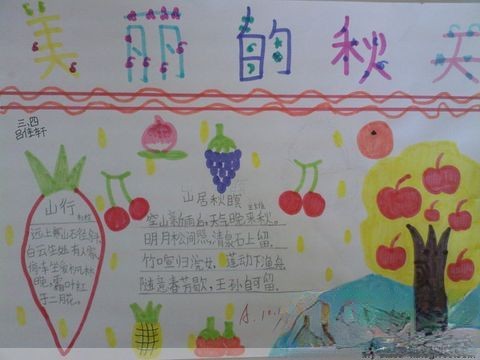 美丽的秋天
三、四
吕佳轩
山行
远上寒山石径斜
白云生处有人家
停车坐爱枫林
晚,霜叶红
于二月花。
山居秋暝
空山新雨后,天气晚来秋。
明月松间照,清泉石上留
竹喧归浣女,莲动下渔舟
随意春芳歇,王孙自可留